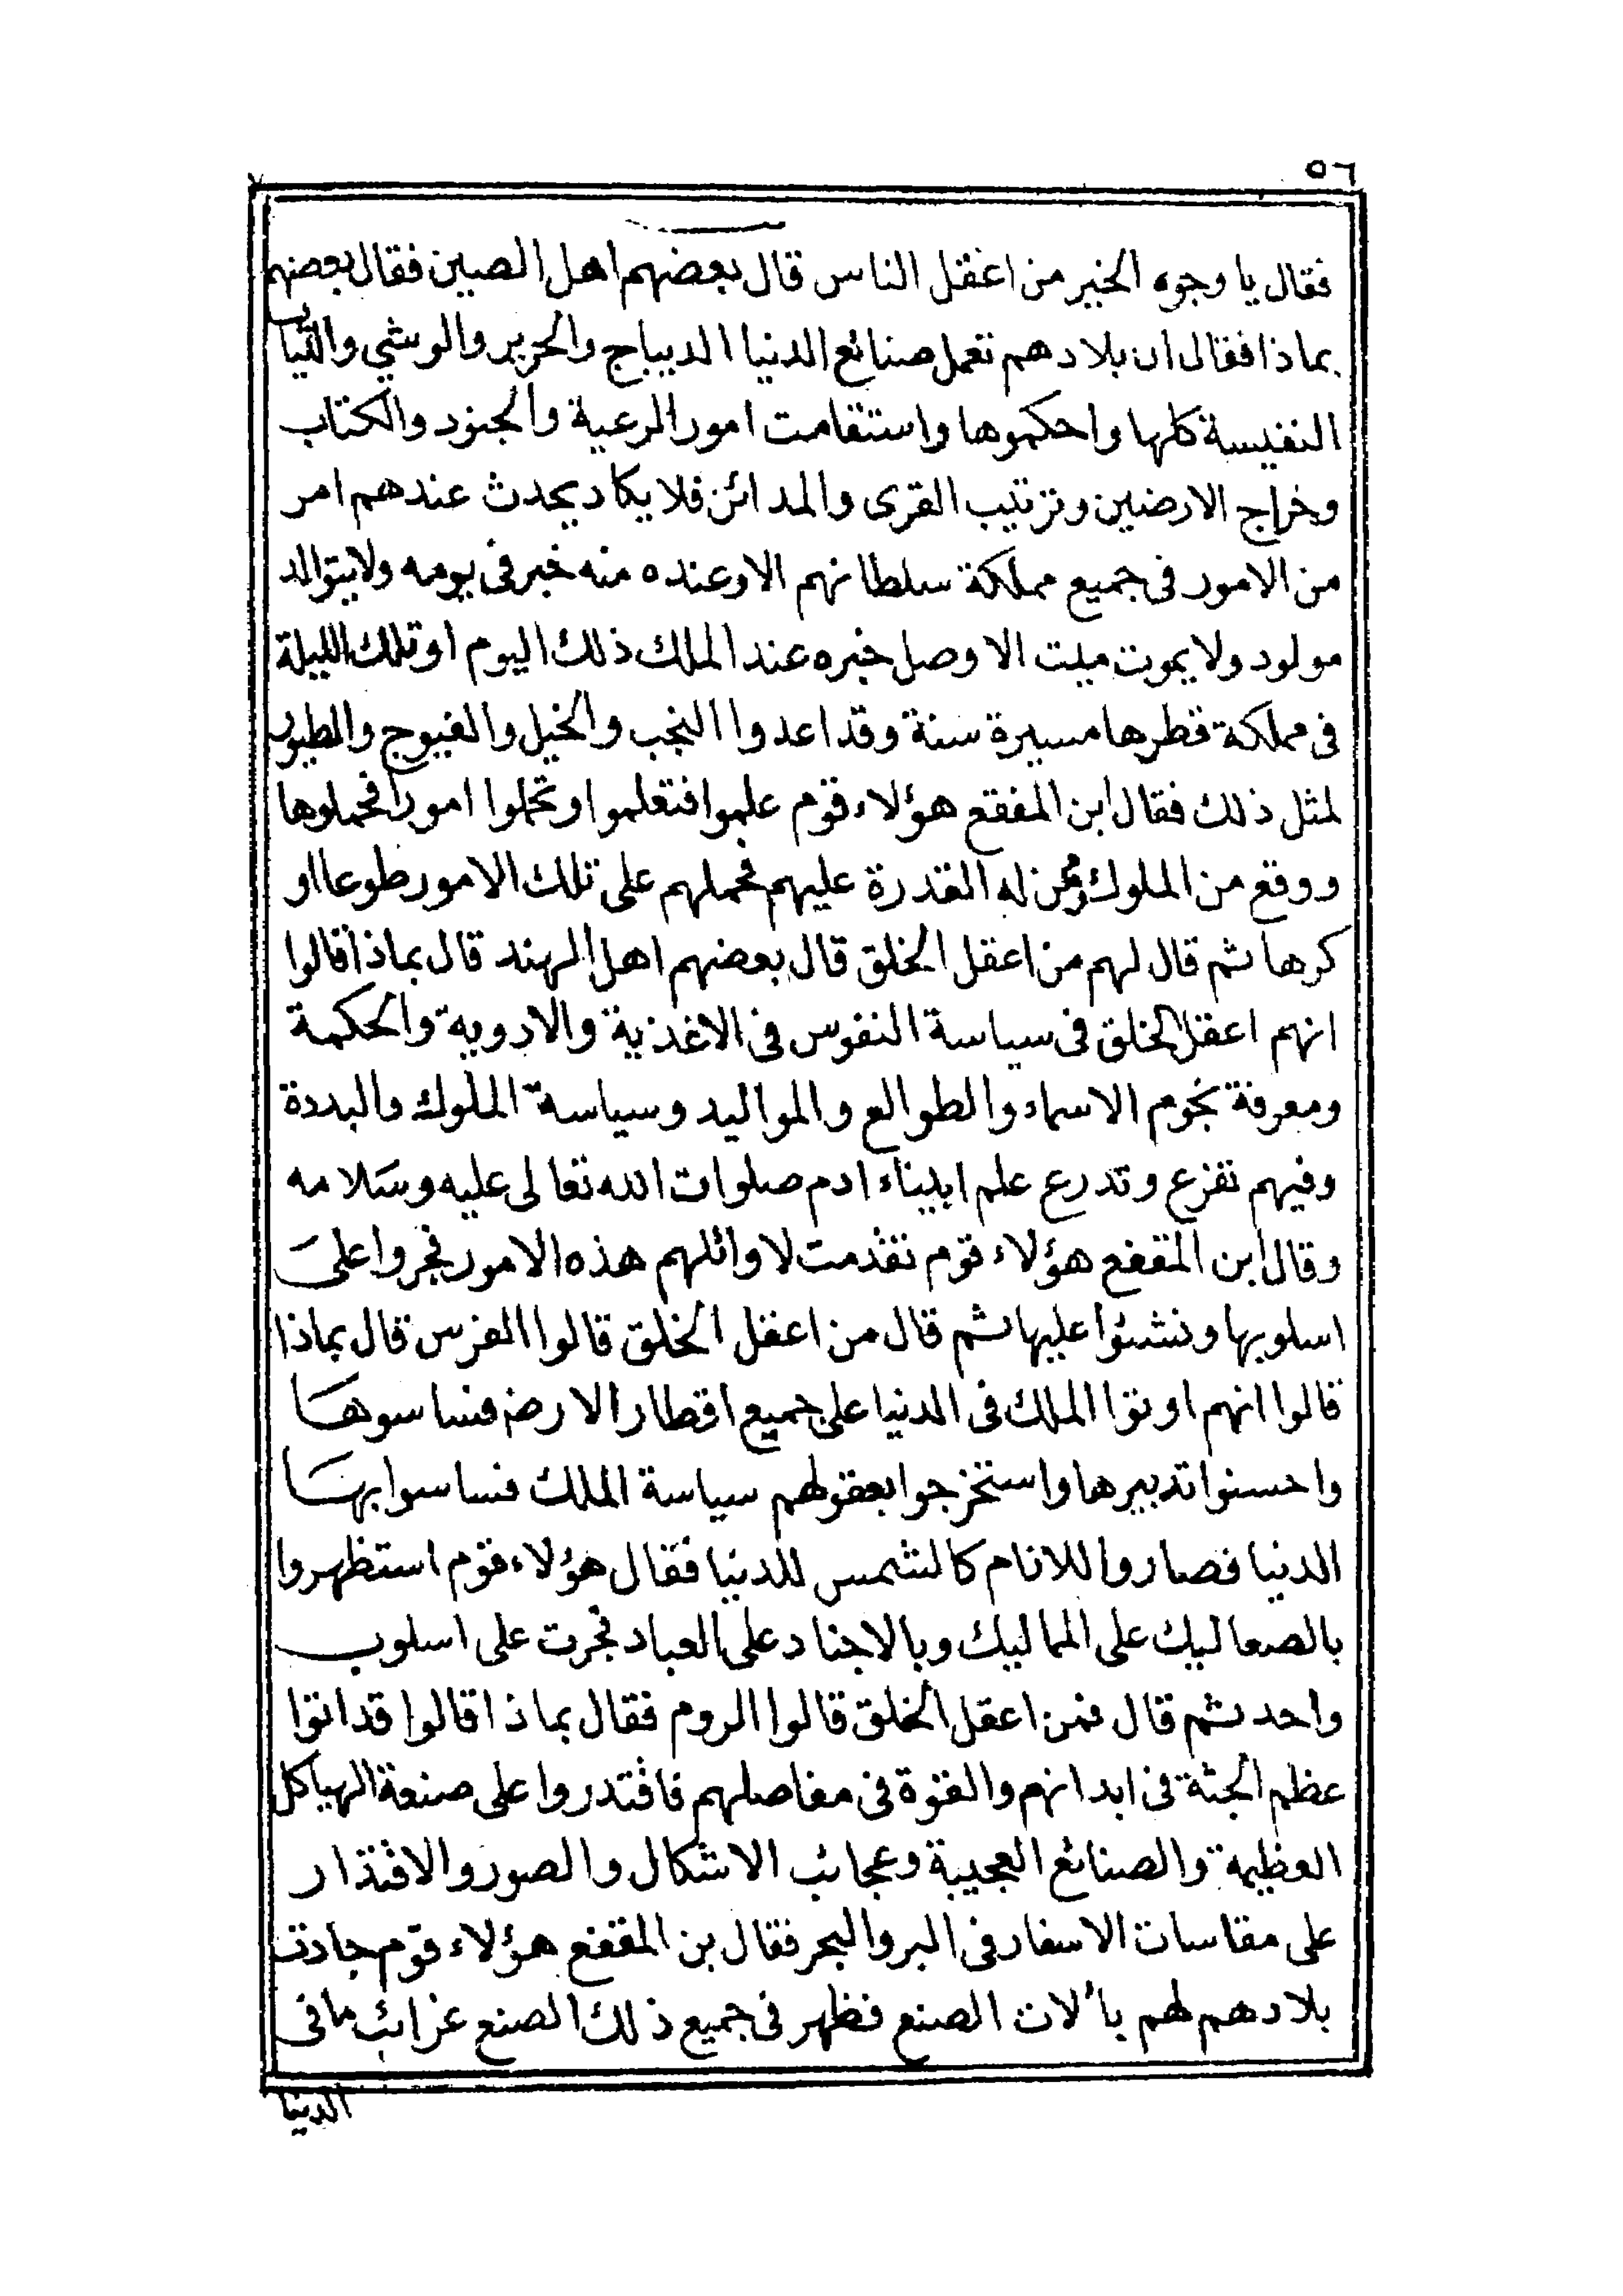 ٥٦
فقال يا وجوه الخير من اعقل الناس قال بعضهم اهل الصين فقال بعضهم
بماذا فقال ان بلادهم تعمل صنائع الدنيا الديباج والحرير والوشي والثياب
النفيسة كلها واحكموها واستقامت امور الرعية والجنود والكتاب
وخراج الارضين وترتيب القرى والمدائن فلا يكاد يحدث عندهم امر
من الامور فى جميع مملكة سلطانهم الا وعنده منه خبر فى يومه ولا يتوالد
مولود ولا يموت ميت الا وصل خبره عند الملك ذلك اليوم او تلك الليلة
فى مملكة قطرها مسيرة سنة وقد اعدوا النجب والخيل والفيوج والطيور
لمثل ذلك فقال ابن المقفع هؤلاء قوم علموا فتعلموا وتحملوا امورا فحملوها
ووقع من الملوك ممن له القدرة عليهم فحملهم على تلك الامور طوعا او
كرها ثم قال لهم من اعقل الخلق قال بعضهم اهل الهند قال بماذا قالوا
انهم اعقل الخلق فى سياسة النفوس فى الاغذية والادوية والحكمة
ومعرفة نجوم الاسماء والطوالع والمواليد وسياسة الملوك والبددة
وفيهم تفزع وتدرع علم ابيناء ادم صلوات الله تعالى عليه وسلامه
وقال ابن المقفع هؤلاء قوم تقدمت لاوائلهم هذه الامور فجروا على
اسلوبها ونشئوا عليها ثم قال من اعقل الخلق قالوا الفرس قال بماذا
قالوا انهم اوتوا الملك فى الدنيا على جميع اقطار الارض فساسوها
واحسنوا تدبيرها واستخرجوا بعقولهم سياسة الملك فساسوا بها
الدنيا فصاروا للانام كالشمس للدنيا فقال هؤلاء قوم استظهروا
بالصعاليك على المماليك وبالاجناد على العباد فجرت على اسلوب
واحد ثم قال فمن اعقل الخلق قالوا الروم فقال بماذا قالوا قد اتوا
عظم الجثة فى ابدانهم والقوة فى مفاصلهم فاقتدروا على صنعة الهياكل
العظيمة والصنائع العجيبة وعجائب الاشكال والصور والاقتدار
على مقاسات الاسفار فى البر والبحر فقال بن المقفع هؤلاء قوم جادت
بلادهم لهم بألات الصنع فظهر فى جميع ذلك الصنع غرائب ما فى
الدنيا